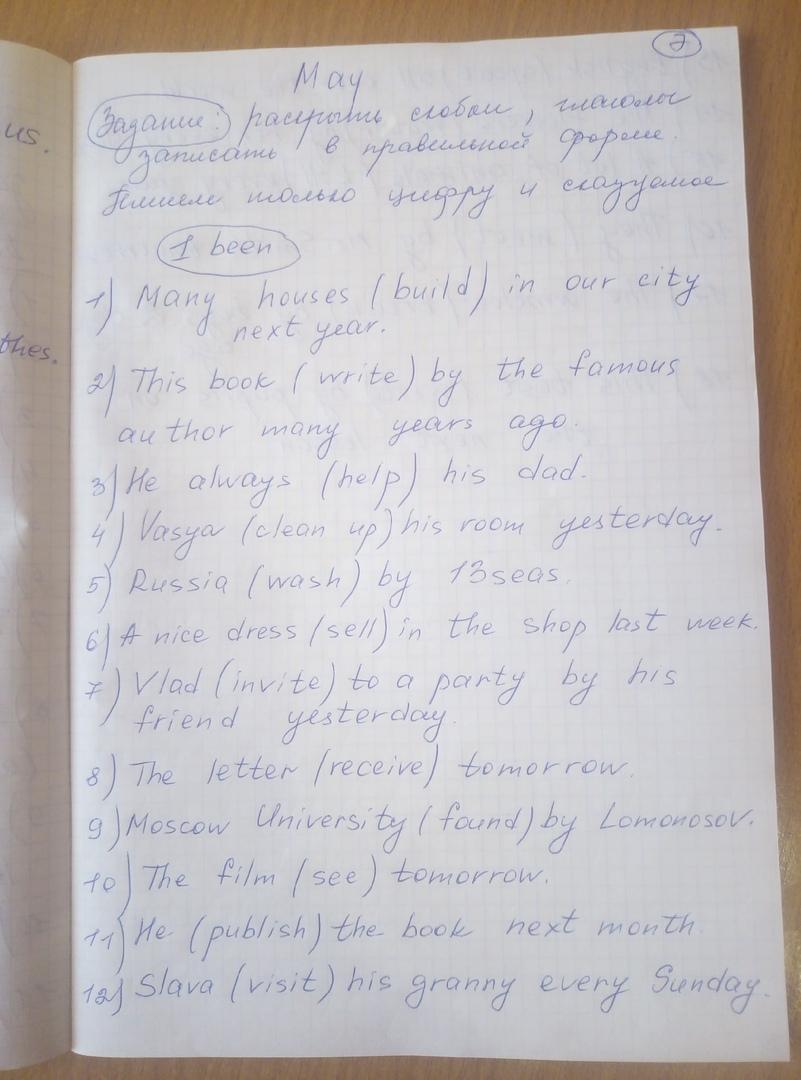 7
May
Задание: раскрыть скобки, глаголы
записать в правильной форме.
Пишем только цифру и сказуемое
us.
1 been
1) Many houses (build) in our city
next year.
thes.
2) This book (write) by the famous
author many years ago.
3) He always (help) his dad.
4) Vasya (clean up) his room yesterday.
5) Russia (wash) by 13 seas.
6) A nice dress (sell) in the shop last week.
7) Vlad (invite) to a party by his
friend yesterday.
8) The letter (receive) tomorrow.
9) Moscow University (found) by Lomonosov.
10) The film (see) tomorrow.
11) He (publish) the book next month.
12) Slava (visit) his granny every Sunday.